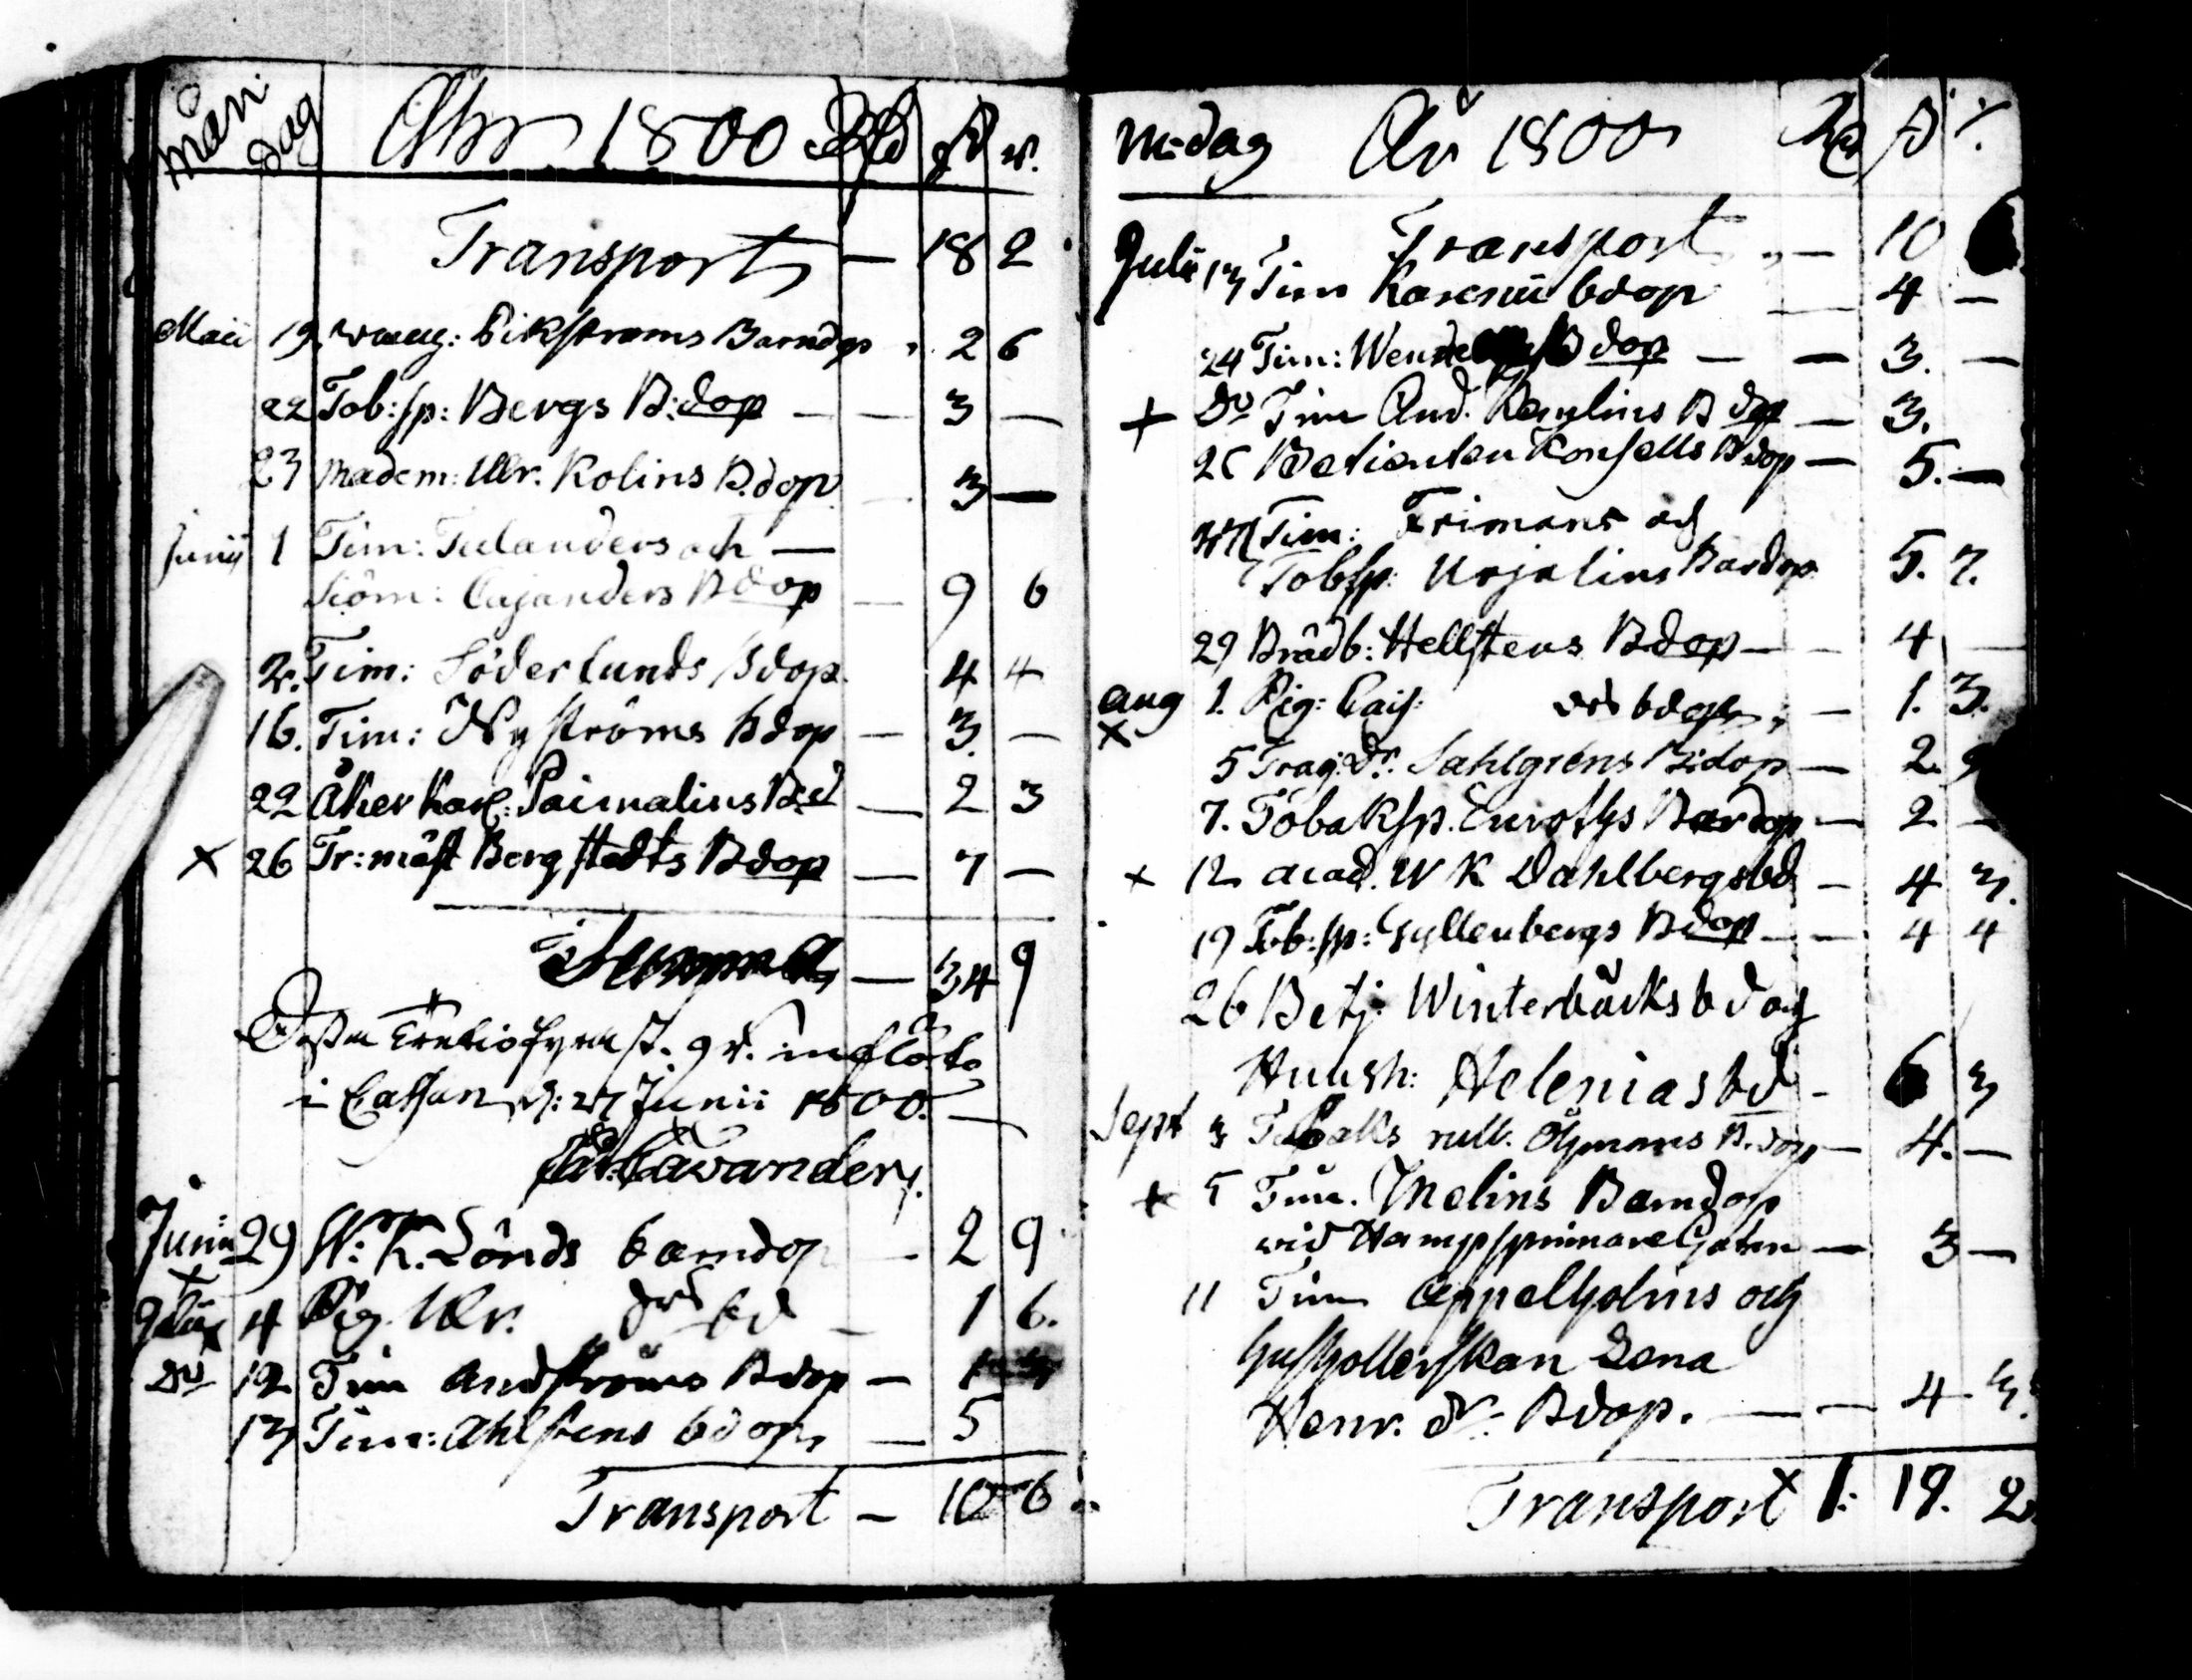 Mån dag Åhr 1800 Rd ß r.
Transport — 18 2
Maii 19. Ekströms Barndop 2 6
22 Tob:sp: Bergs B:dop — — 3 —
23 Madem: Ulr. Kolins B.dop 3 —
Junij 1 Tim: Tulanders och —
Cajanders Bdop — 9 6
2. Tim: Söderlunds Bdop. 4 4
16. Tim: Nyströms bdop — 3. —
22 Åkerkarl: Paimalins Bd — 2 3
x 26 Tr:mäst Bergstedts Bdop — 7 —
Summa — 34 9
Dessa Trettiofyra ß. 9 r. influtto
i Cassan d: 27 Junii 1800. —
Cavander.
Junii 29 W: K. Lönds barndop — 2 9
Julii x 4 Pig. Ulr. drs bd — 1 6.
Do 12 Tim Andströms Bdop — 1
13 Tim: Ahlstens bdop — 5
Transport — 10 6
M. dag År 1800 Rd ß r.
Transport — 10
Julii 13 Tim bdop — 4 —
24 Tim: Bdop — — 3. —
+ Do Tim And. Remlins Bdop — 3.
Betienten Bdop — 5. —
27 Tim: Frimans och
Tobsp: Urjalins Bardop 5. 7.
29 Brädb: Hellstens Bdop — 4 —
Aug x 1. Pig: Cajs: drs bdop — 1. 3.
5 dr: Sahlgrens B:dop — 2.
7. Tobaksp. Bardop — 2 —
x 12 Acad. W K Dahlbergs bd — 4 3.
19 Tob:sp: Gyllenbergs Bdop — — 4 4
26 Betj: Winterbäcks bd och
Hush: Helenias bd — 6 3
Sept 3 Tobaks rull. Öhmans B.dop — 4. —
+ 5 Tim. Melins Barndop
wid Hampspinnare Gatan — 3 —
11 Tim Appelholms och
Hushollerskan Lena
Henr. dr: Bdop. — — 4 3.
Transport 1: 19. 2